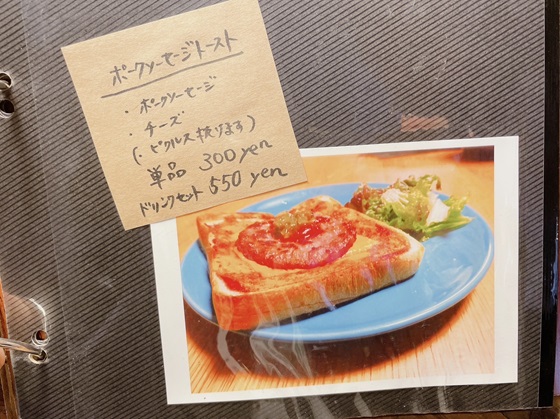 ポークソーセージトースト
・ポークソーセージ
・チーズ
(・ピクルス抜けます)
単品 300yen
ドリンクセット 550yen